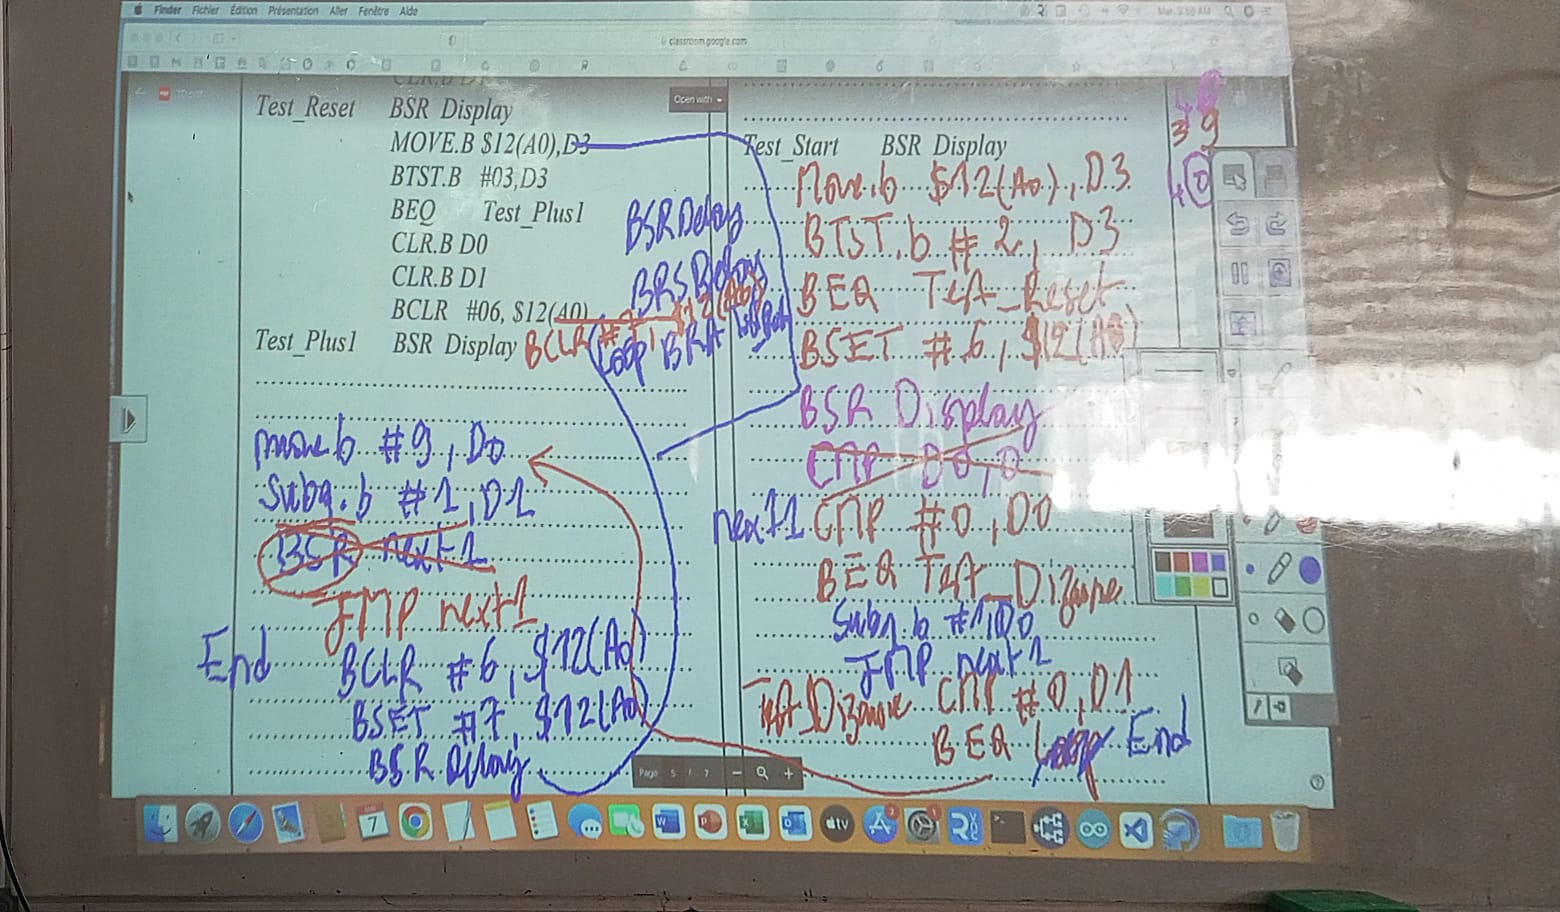 Finder Fichier Édition Présentation Aller Fenêtre Aide
classroom.google.com
CLR.B D1
Open with
Test_Reset BSR Display
MOVE.B $12(A0),D3
BTST.B #03,D3
BEQ Test_Plus1
CLR.B D0
CLR.B D1
BCLR #06, $12(A0)
Test_Plus1 BSR Display
BSR Delay
BRS Delay
BCLR #7, $12(A0)
Loop BRA Loop
move.b #9, D0
Subq.b #1, D1
BSR next1
JMP next1
End BCLR #6, $12(A0)
BSET #7, $12(A0)
BSR Delay
Test_Start BSR Display
Move.b $12(A0), D3
BTST.b #2, D3
BEQ Test_Reset
BSET #6, $12(A0)
BSR Display
CMP D0, 0
next1 CMP #0, D0
BEQ Test_Dizaine
Subq.b #1, D0
JMP next1
Test_Dizaine CMP #0, D1
BEQ Loop End
39
40
Page 5 / 7
7
W
P
X
tv